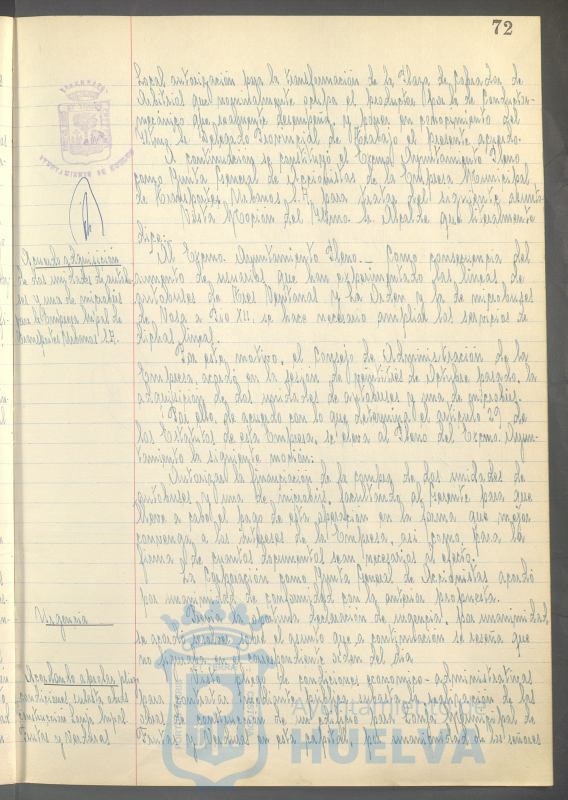 72
Local autorización para la transformación de la Plaza de Cobrador de
Arbitrios que nominalmente ocupa el productor por la de Conductor-
mecánico que realmente desempeña y poner en conocimiento del
Iltmo. Sr. Delegado Provincial de Trabajo el presente acuerdo.
A continuación se constituyó el Excmo. Ayuntamiento Pleno
como Junta General de Accionistas de la Empresa Municipal
de Transportes Urbanos, S.A. para tratar del siguiente asunto
Vista Moción del Iltmo. Sr. Alcalde que literalmente
dice:
Acuerdo adquisición
de dos unidades de autobu-
ses y una de microbús
para la Empresa Mpal. de
Transportes Urbanos S.A.
Al Excmo. Ayuntamiento Pleno.- Como consecuencia del
aumento de usuarios que han experimentado las líneas de
autobuses de Tres Ventanas y la Orden y la de microbuses
de Rosa a Pio XII, se hace necesario ampliar los servicios de
dichas líneas.
Por este motivo, el Consejo de Administración de la
Empresa, acordó en la sesión de veintitrés de Octubre pasado, la
adquisición de dos unidades de autobuses y una de microbús.
Por ello, de acuerdo con lo que determina el artículo 29 de
los Estatutos de esta Empresa, se eleva al Pleno del Excmo. Ayun-
tamiento la siguiente moción:
Autorizar la financiación de la compra de dos unidades de
autobuses y una de microbús, facultando al Gerente para que
lleve a cabo el pago de esta operación en la forma que mejor
convenga a los intereses de la Empresa, así como para la
firma de cuantos documentos sean necesarios al efecto.
La Corporación como Junta General de Accionistas acordó
por unanimidad de conformidad con la anterior propuesta.
Urgencia
Previa la oportuna declaración de urgencia, por unanimidad
se acordó resolver sobre el asunto que a continuación se reseña que
no figuraba en el correspondiente orden del día
Acordando aprobar pliego
condiciones, subasta obras
construcción Lonja Mpal.
Frutas y Verduras
Visto de condiciones económico-administrativas
para contratar mediante pública subasta la realización de las
obras de construcción de un edificio para Lonja Municipal de
Frutas y Verduras en esta capital, por unanimidad de los señores
AYUNTAMIENTO DE HUELVA
Ayuntamiento de
HUELVA